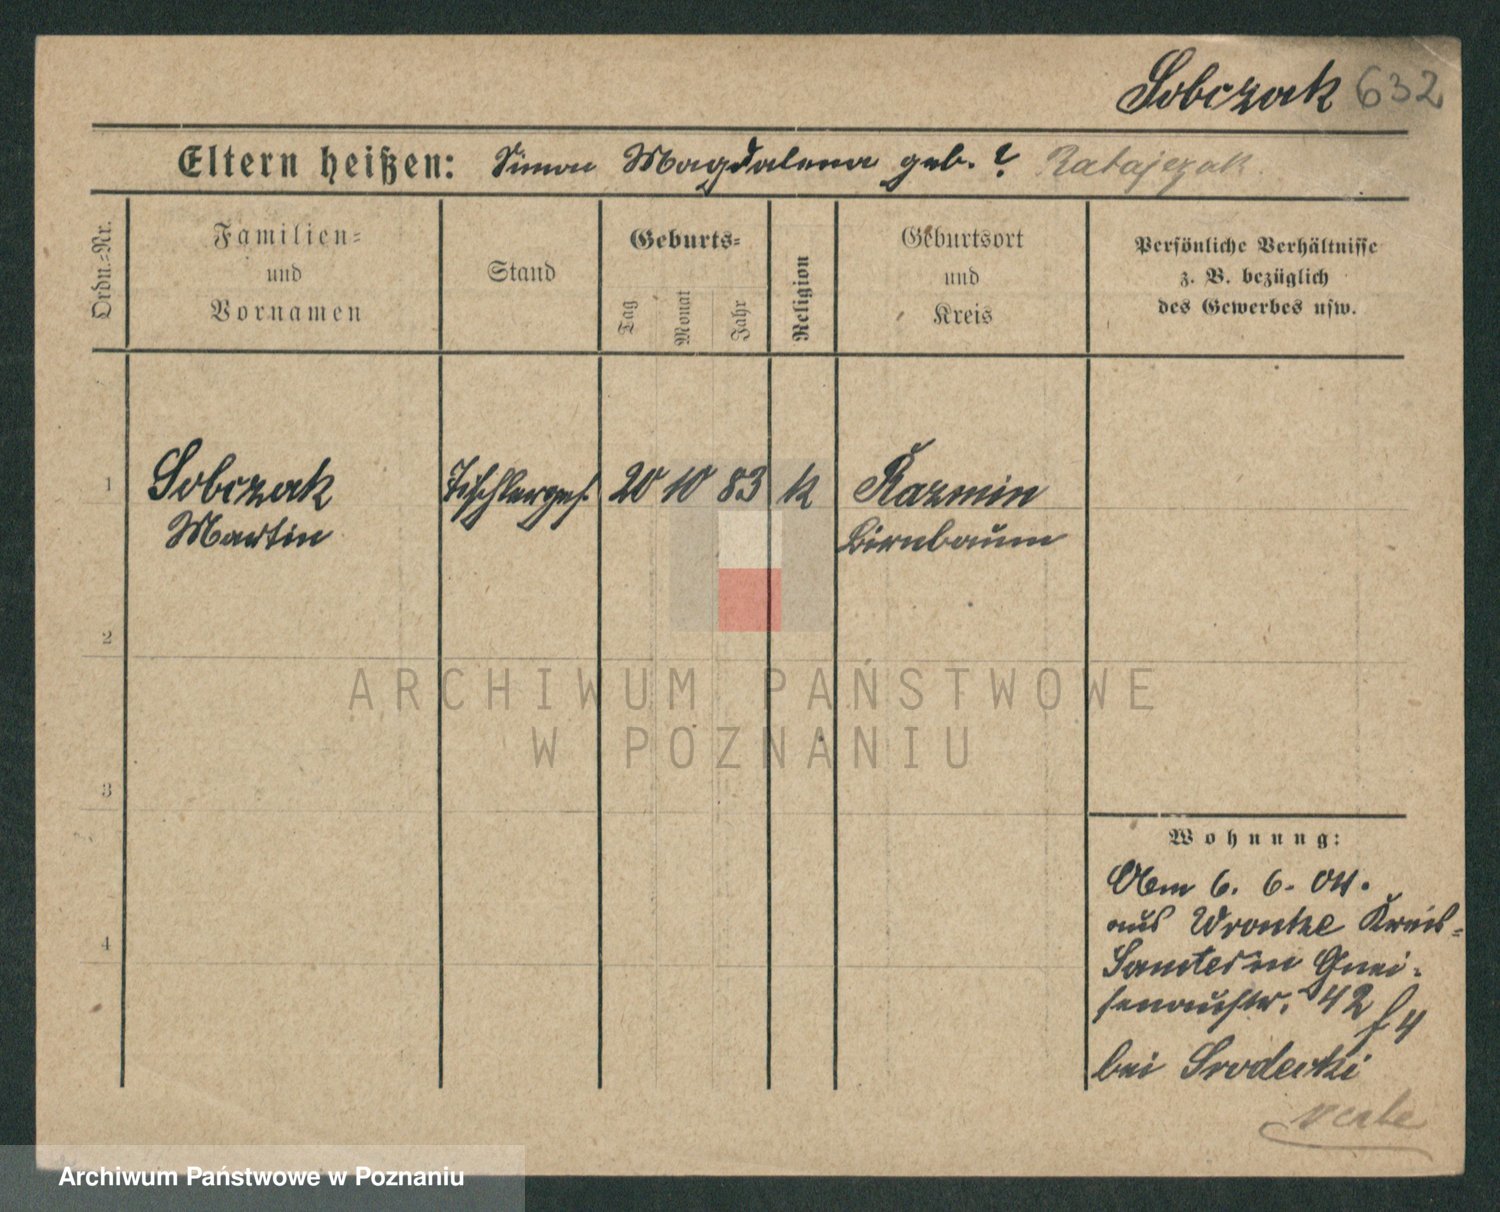 Sobczak 632
Eltern heißen: Simon Magdalena geb. ? Ratajczak.
Ordn.=Nr.
Familien=
und
Vornamen
Stand
Geburts=
Tag
Monat
Jahr
Religion
Geburtsort
und
Kreis
Persönliche Verhältnisse
z. B. bezüglich
des Gewerbes usw.
1 Sobczak Tischlerges. 20 10 83 k Kazmin
Martin Birnbaum
2
ARCHIWUM PAŃSTWOWE
W POZNANIU
3
Wohnung:
Am 6. 6. 04.
aus Wronke Kreis=
4
Samter in Gnei=
senaustr. 42
bei Srodecki
Archiwum Państwowe w Poznaniu